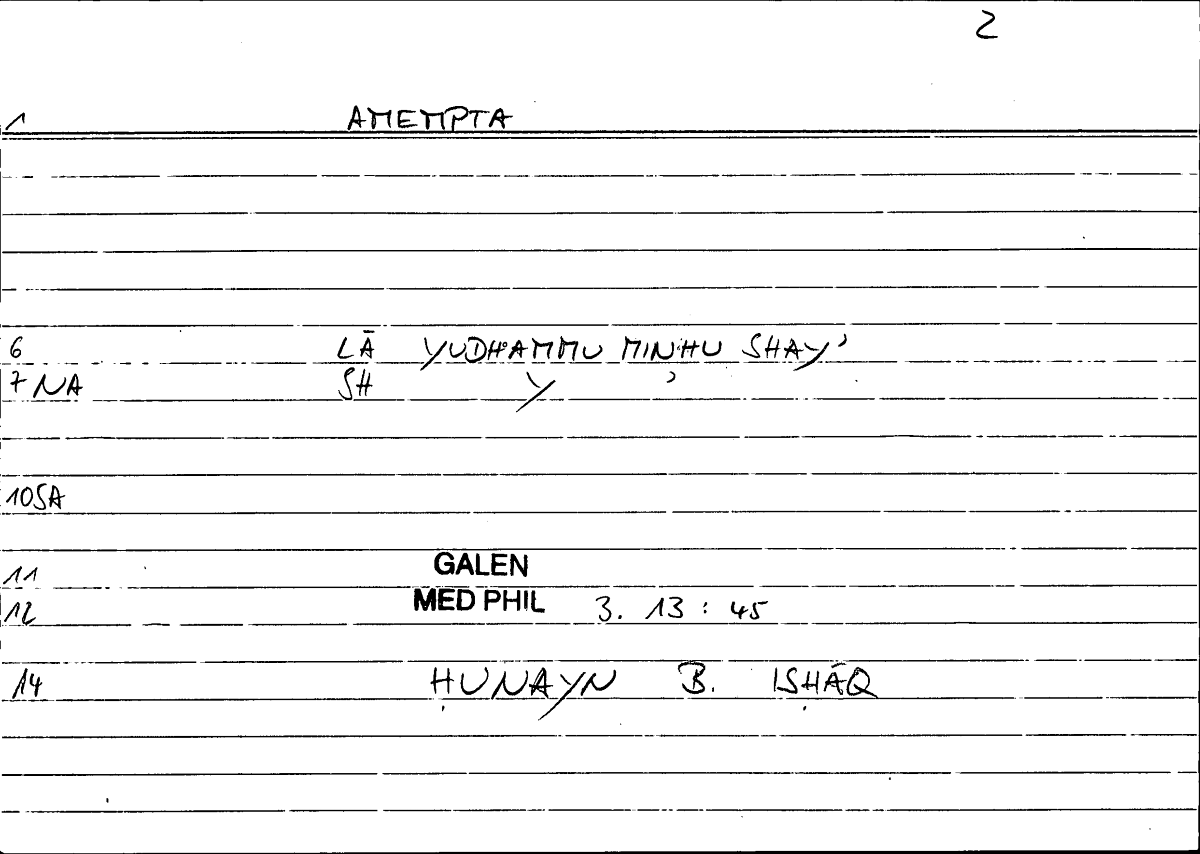 2
1 AMEMPTA
6 LĀ YUDHAMMU MINHU SHAY'
7 NA SH Y '
10SA
11 GALEN
12 MED PHIL 3. 13 : 45
14 ḤUNAYN B. ISḤĀQ